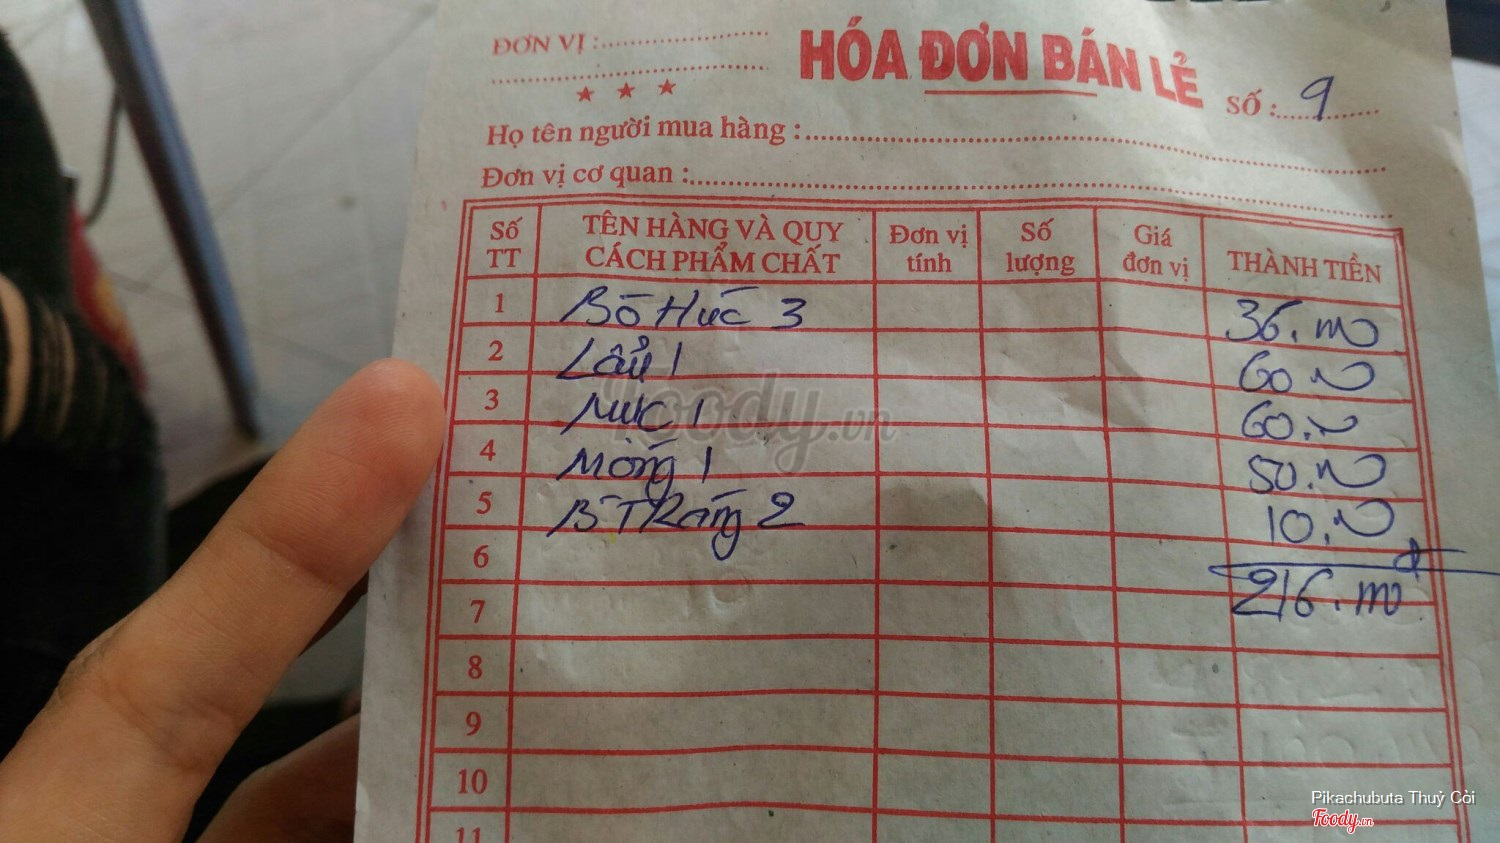 ĐƠN VỊ :
HÓA ĐƠN BÁN LẺ
SỐ : 9
Họ tên người mua hàng :
Đơn vị cơ quan :
Số TT
TÊN HÀNG VÀ QUY CÁCH PHẨM CHẤT
Đơn vị tính
Số lượng
Giá đơn vị
THÀNH TIỀN
1 Bò Húc 3 36.000
2 Lẩu 1 60.000
3 Mực 1 60.000
4 Móng 1 50.000
5 B Tráng 2 10.000
6
7 216.000
8
9
10
11
Foody.vn
Pikachubuta Thuỳ Còi
Foody.vn